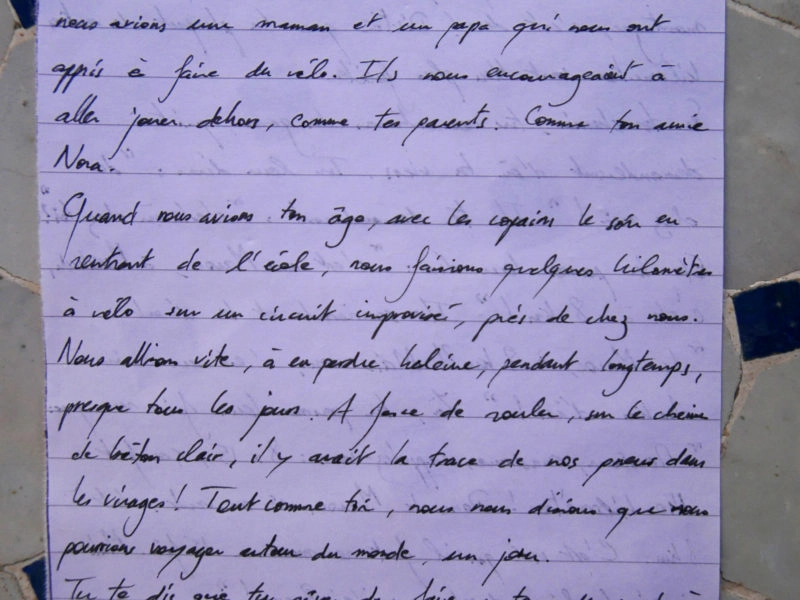 nous avions une maman et un papa qui nous ont
appris à faire du vélo. Ils nous encourageaient à
aller jouer dehors, comme tes parents. Comme ton amie
Nora.
Quand nous avions ton âge, avec les copains le soir en
rentrant de l'école, nous faisions quelques kilomètres
à vélo sur un circuit improvisé, près de chez nous.
Nous allions vite, à en perdre haleine, pendant longtemps,
presque tous les jours. A force de rouler, sur le chemin
de béton clair, il y avait la trace de nos pneus dans
les virages! Tout comme toi, nous nous disions que nous
pourrions voyager autour du monde, un jour.
Tu te dis que tu